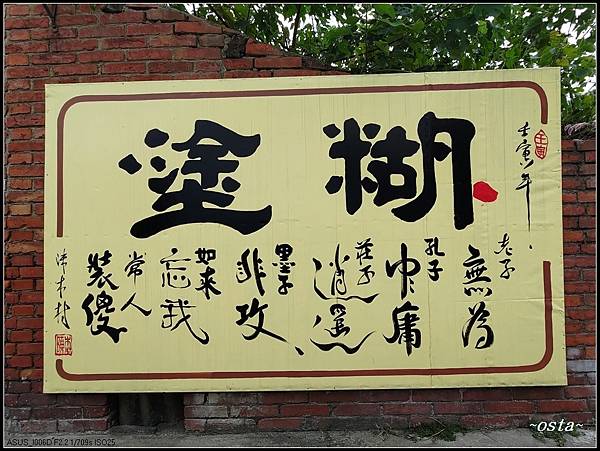 壬寅年
壬寅
糊塗
老子
無為
孔子
中庸
莊子
逍遙
墨子
非攻
如來
忘我
常人
裝傻
~osta~
ASUS_I006D F2.2 1/709s ISO25